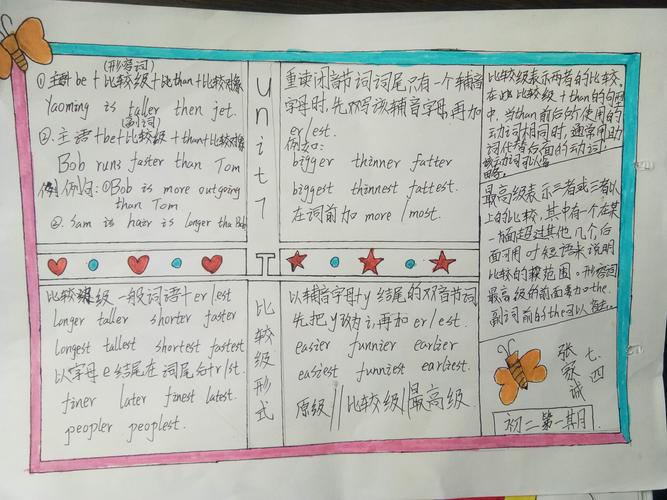 (形容词)
①主语 be + 比较级 + 比than + 比较对象
Yaoming is taller then jet.
(副词)
②.主语+be+比较级 + than+比较对象
Bob runs faster than Tom
例 例句:①Bob is more outgoing
than Tom
②. Sam is hair is longer tha Bob
unit7
重读闭音节词词尾只有一个辅音
字母时,先双写该辅音字母,再加
er/est.
例如:
bigger thinner fatter
biggest thinnest fattest.
在词前加 more /most.
比较级表示两者的比较,
在此比较级 + than的句型
中,当than前后所使用的
动词相同时,通常用助
词代替后面的动词,
该动词可以省
略.
最高级表示三者或三者以
上的比较,其中有一个在某
一方面超过其他几个,后
面可用 of 短语来说明
比较的范围。形容词
最高级的前面要加the.
副词前的the可以省去.
比较级 一般词语+er/est
longer taller shorter faster
longest tallest shortest fastest
以字母e结尾在词尾后+r/st.
finer later finest latest.
peopler peoplest.
比较级形式
以辅音字母+y 结尾的双音节词
先把 y改为i,再加 er/est.
easier funnier earlier
easiest funniest earliest.
原级 || 比较级 || 最高级
七四
张家诚
初二第一期月